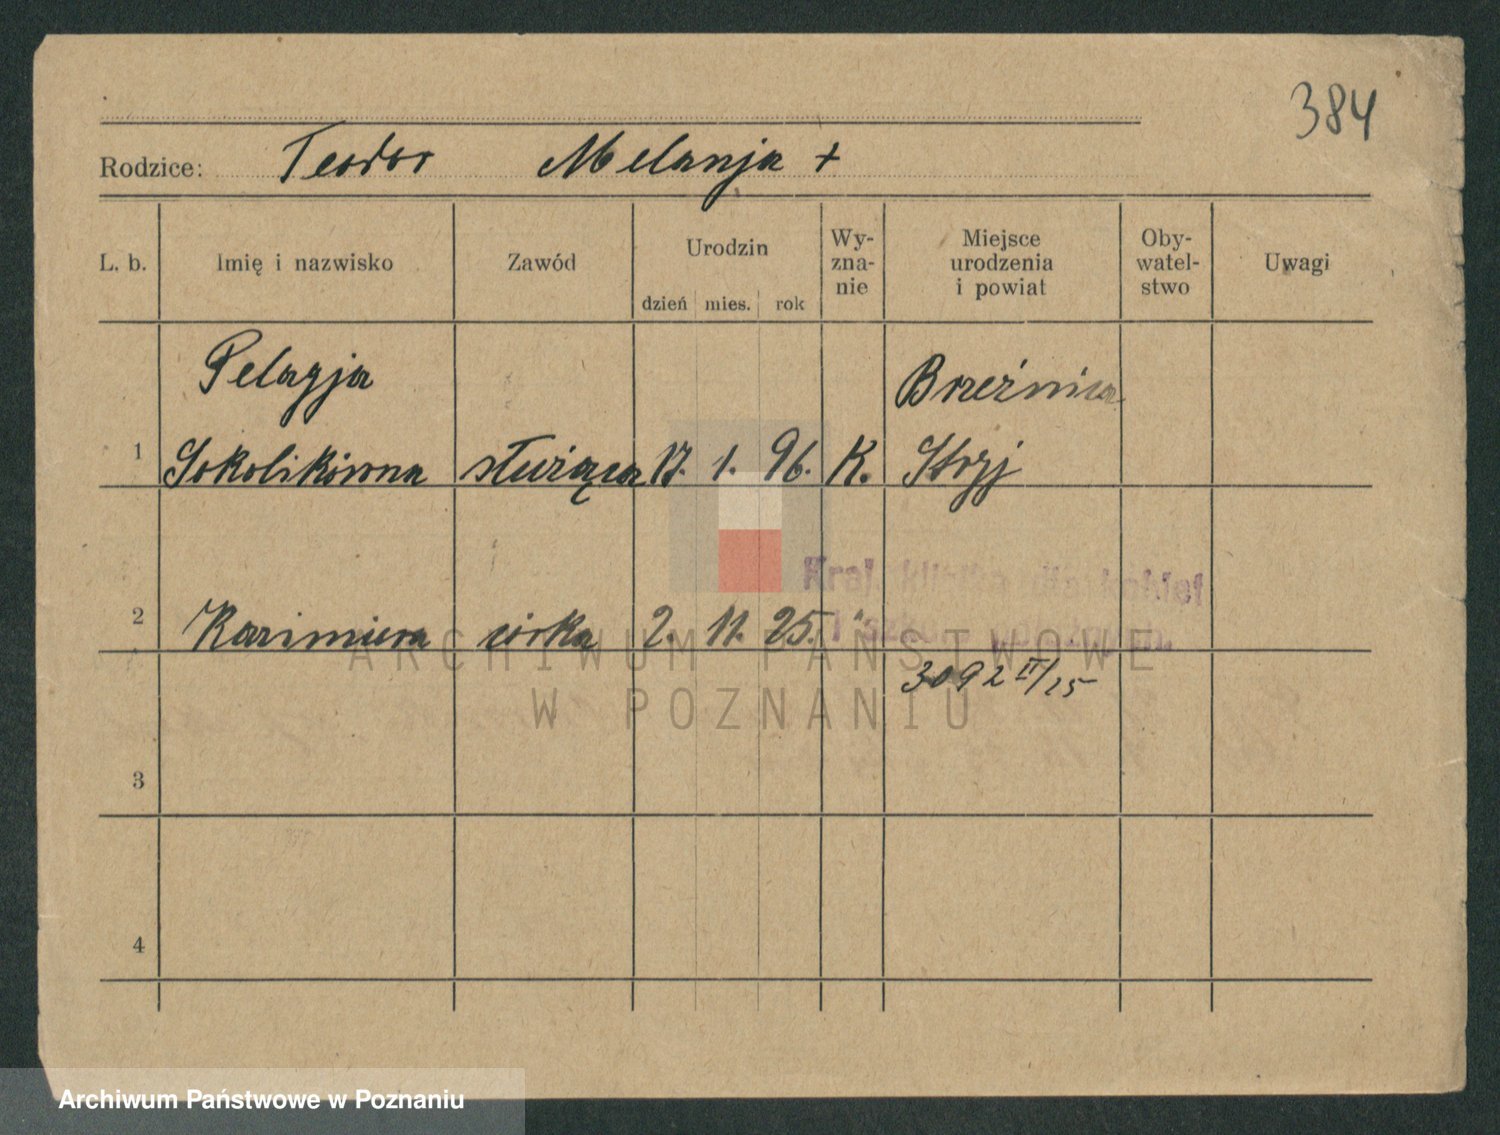 384
Rodzice: Teodor Melanja +
L. b. Imię i nazwisko Zawód Urodzin dzień mies. rok Wy-zna-nie Miejsce urodzenia i powiat Oby-watel-stwo Uwagi
Pelagja Brzeźnica
1 Sokolikówna służąca 17. 1. 96. K. Stryj
Kraj. klinika dla kobiet
2 Kazimiera córka 2. 11. 25. "
i szkoła położnych.
3092 II/25
3
4
ARCHIWUM PAŃSTWOWE
W POZNANIU
Archiwum Państwowe w Poznaniu